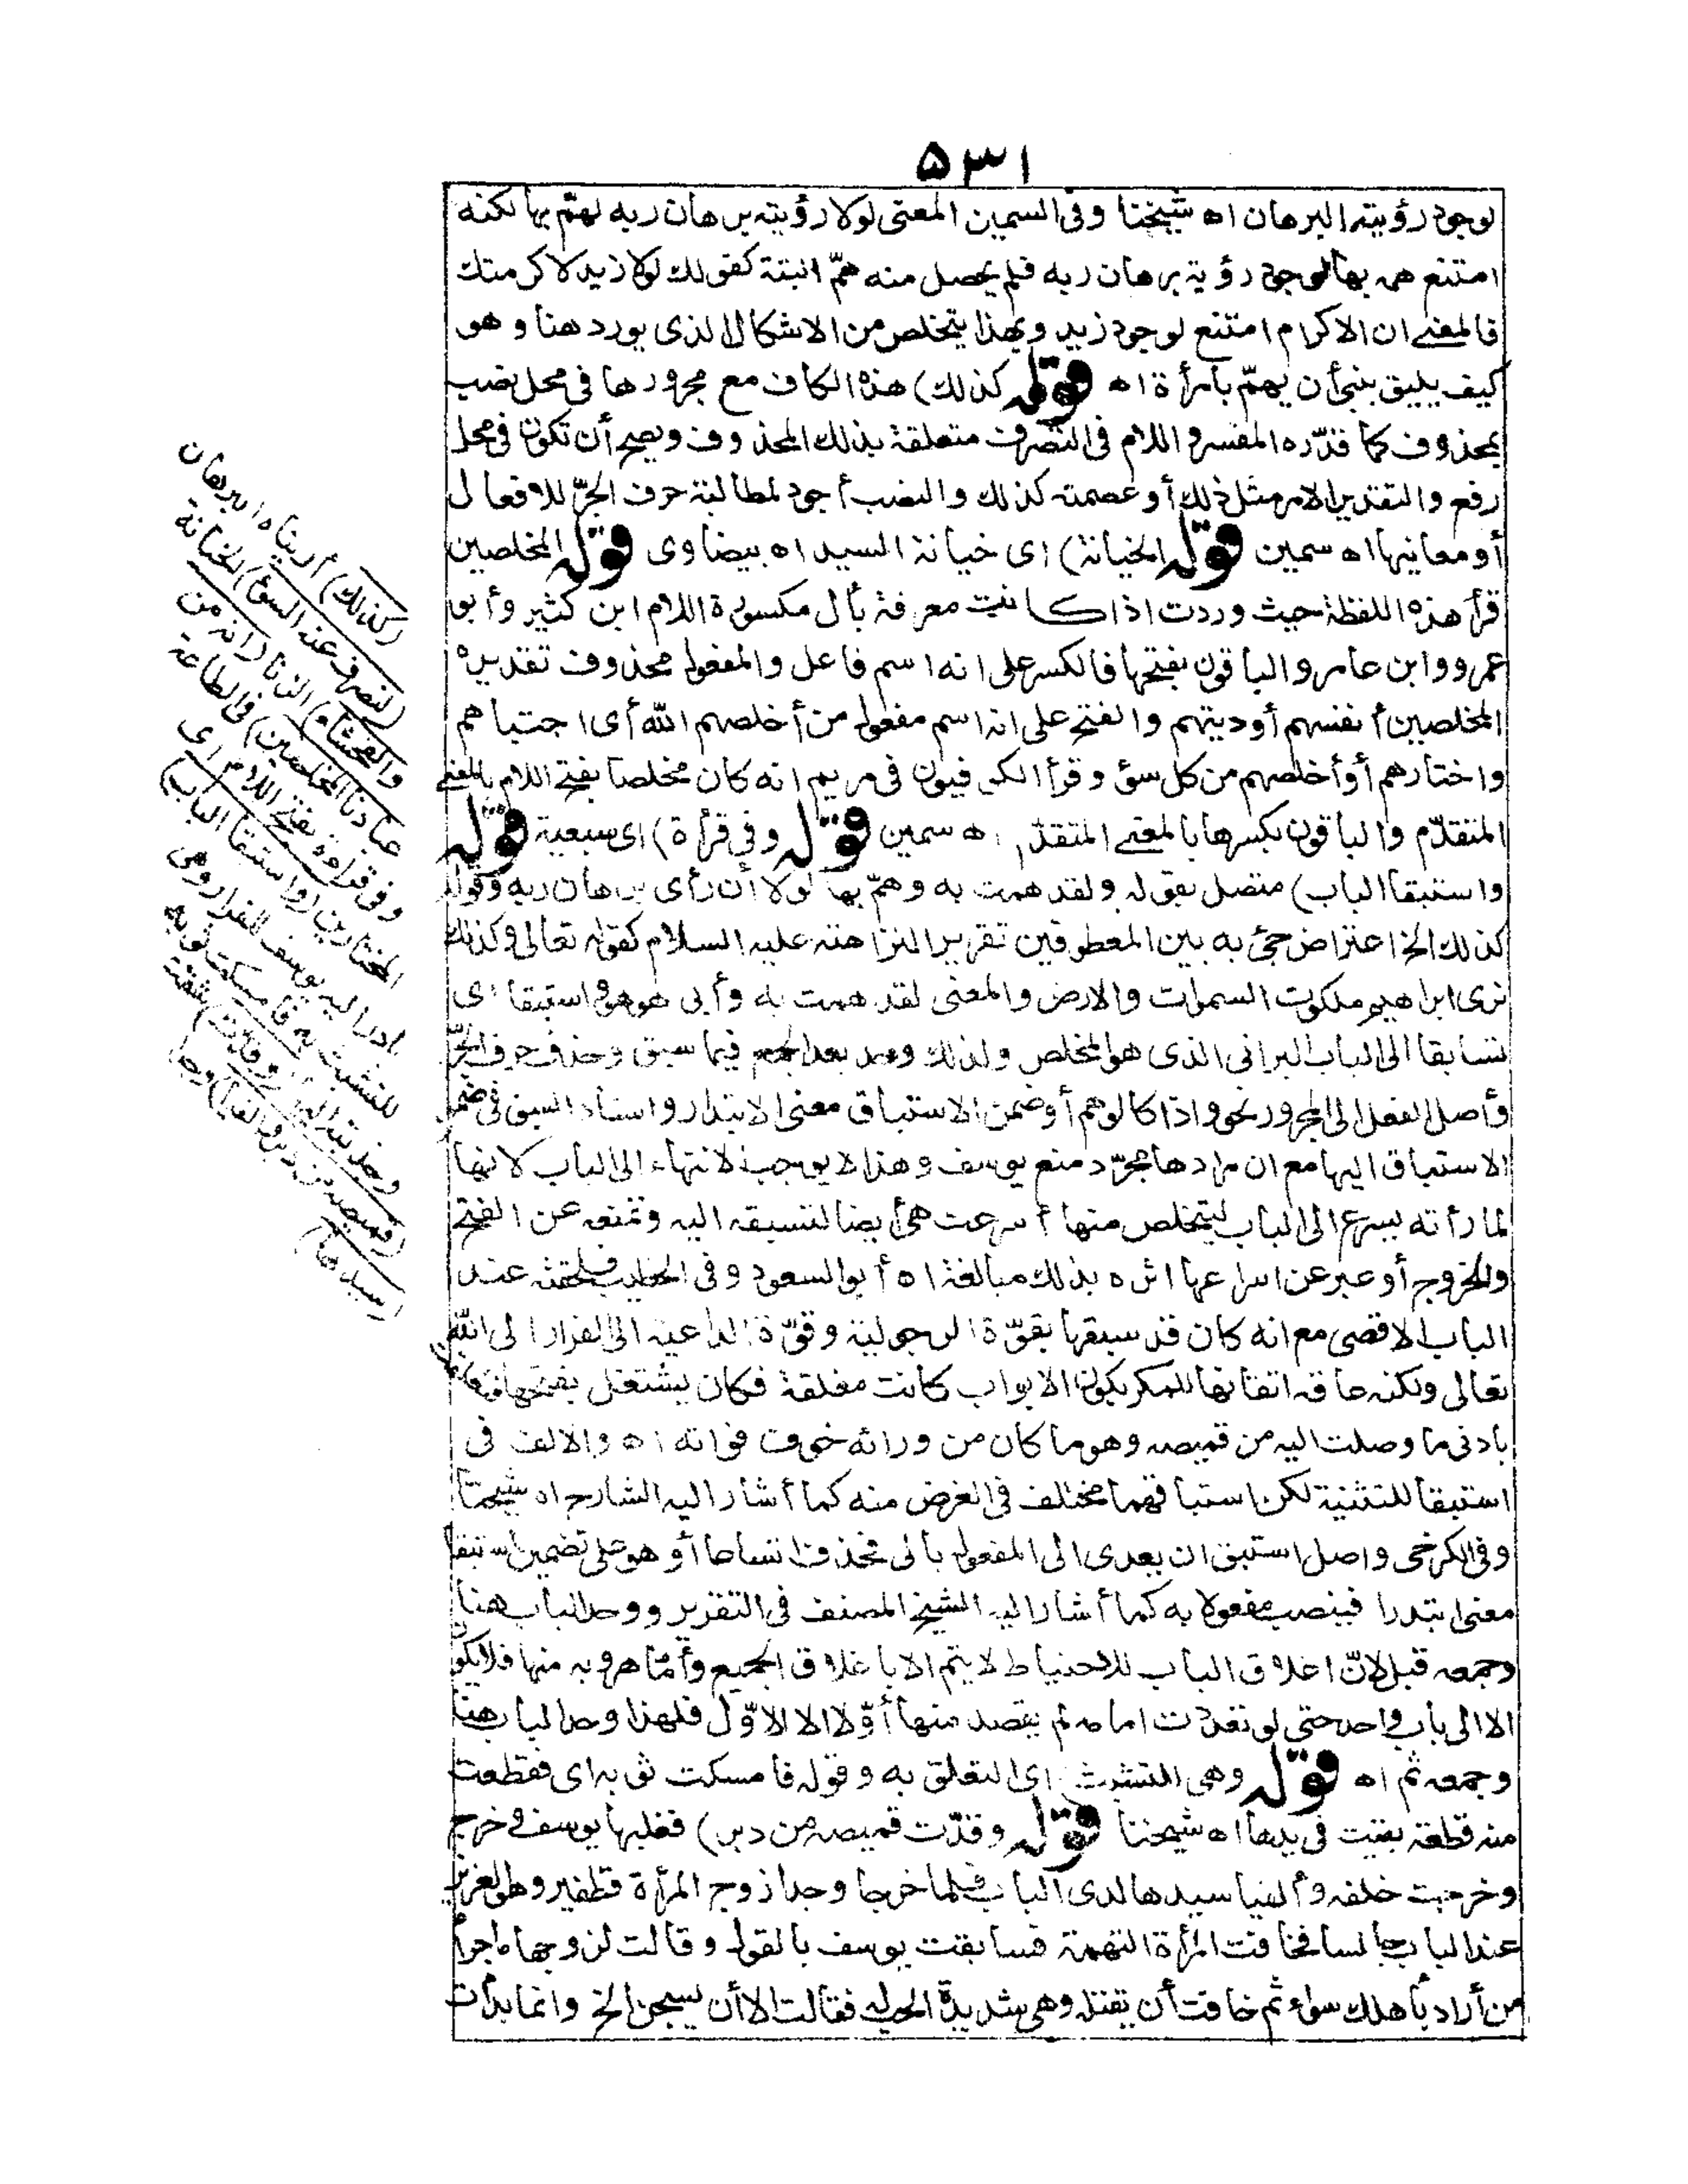 ٥٣١
لوجود رؤيته البرهان اه شيخنا وفى السمين المعنى لولا رؤيته برهان ربه لهمّ بها لكنه
امتنع همه بها لوجود رؤية برهان ربه فلم يحصل منه همّ البتة كقولك لولا زيد لاكرمتك
فالمعنى ان الاكرام امتنع لوجود زيد وبهذا يتخلص من الاشكال الذى يورد هنا وهو
كيف يليق بنبى أن يهمّ بامرأة اه قوله كذلك) هذه الكاف مع مجرورها فى محل نصب
بمحذوف كما قدّره المفسر واللام فى لنصرف متعلقة بذلك المحذوف ويصح أن تكون فى محل
رفع والتقدير الامر مثل ذلك أو عصمته كذلك والنصب أجود لمطالبة حرف الجرّ للافعال
أو معانيها اه سمين قوله الخيانة) اى خيانة السيد اه بيضاوى قوله المخلصين
قرأ هذه اللفظة حيث وردت اذا كانت معرفة بأل مكسورة اللام ابن كثير وأبو
عمرو وابن عامر والباقون بفتحها فالكسر على انه اسم فاعل والمفعول محذوف تقديره
المخلصين أنفسهم أو دينهم والفتح على انه اسم مفعول من أخلصهم الله أى اجتباهم
واختارهم أو أخلصهم من كل سوء وقرأ الكوفيون فى مريم انه كان مخلصا بفتح اللام بالمعنى
المتقدّم والباقون بكسرها بالمعنى المتقدّم اه سمين قوله وفى قرأة) اى سبعية قوله
واستبقا الباب) متصل بقوله ولقد همت به وهمّ بها لولا أن رأى برهان ربه وقوله
كذلك الخ اعتراض جئ به بين المعطوفين تقريرا لنزاهته عليه السلام كقوله تعالى وكذلك
نرى ابراهيم ملكوت السموات والارض والمعنى لقد همت به وأبى هو واستبقا اى
تسابقا الى الباب البرانى الذى هو المخلص ولذلك وحد بعد الجمع فيما سبق وحذف حرف الجرّ
وأصل الفعل الى المجرور نحو واذا كالوهم أو ضمن الاستباق معنى الابتدار واسناد السبق فى ضمن
الاستباق اليها مع ان مرادها مجرّد منع يوسف وهذا لا يوجب الانتهاء الى الباب لانها
لما رأته يسرع الى الباب ليتخلص منها أسرعت هى أيضا لتسبقه اليه وتمنعه عن الفتح
والخروج أو عبر عن اسراعها اثره بذلك مبالغة اه أبو السعود وفى الخطيب فلحقته عند
الباب الاقصى مع انه كان قد سبقها بقوّة الرجولية وقوّة الداعية الى الفرار الى الله
تعالى ولكنه عاقه اتقانها للمكر بكون الابواب كانت مغلقة فكان يشتغل بفتحها فتعلقت
بادنى ما وصلت اليه من قميصه وهو ما كان من ورائه خوف فواته اه والالف فى
استبقا للتثنية لكن استباقهما مختلف فى الغرض منه كما أشار اليه الشارح اه شيخنا
وفى الكرخى واصل استبق ان يعدى الى المفعول بالى فحذف اتساعا أو هو على تضمين استبقا
معنى ابتدرا فينصب مفعولا به كما أشار اليه الشيخ المصنف فى التقرير ووحد الباب هنا
وجمعه قبل لانّ اغلاق الباب للاحتياط لا يتم الا باغلاق الجميع وأمّا هروبه منها فلا يكون
الا الى باب واحد حتى لو تعدّدت امامه لم يقصد منها أوّلا الا الاوّل فلهذا وحد الباب هنا
وجمعه ثم اه قوله وهى للتشبث) اى التعلق به وقوله فامسكت ثوبه اى فقطعت
منه قطعة بقيت فى يدها اه شيخنا قوله وقدّت قميصه من دبر) فغلبها يوسف وخرج
وخرجت خلفه وألفيا سيدها لدى الباب فلما خرجا وجدا زوج المرأة قطفير وهو العزيز
عند الباب جالسا فخافت المرأة التهمة فسابقت يوسف بالقول وقالت لزوجها ما جزأ
من أراد بأهلك سواء ثم خافت أن يقتله وهى شديدة الحب له فقالت الا أن يسجن الخ وانما بدأت
(كذلك) أريناه البرهان
(لنصرف عنه السوء) الخيانة
والفحشاء) الزنا (انه من
عبادنا المخلصين) فى الطاعة
وفى قراءة بفتح اللام اى
المختارين (واستبقا الباب)
بادرا اليه يوسف للفرار وهى
للتشبث به فامسكت ثوبه
وجذبته اليها (وقدت) شقت
(قميصه من دبر وألفيا) وجدا
(سيدها)